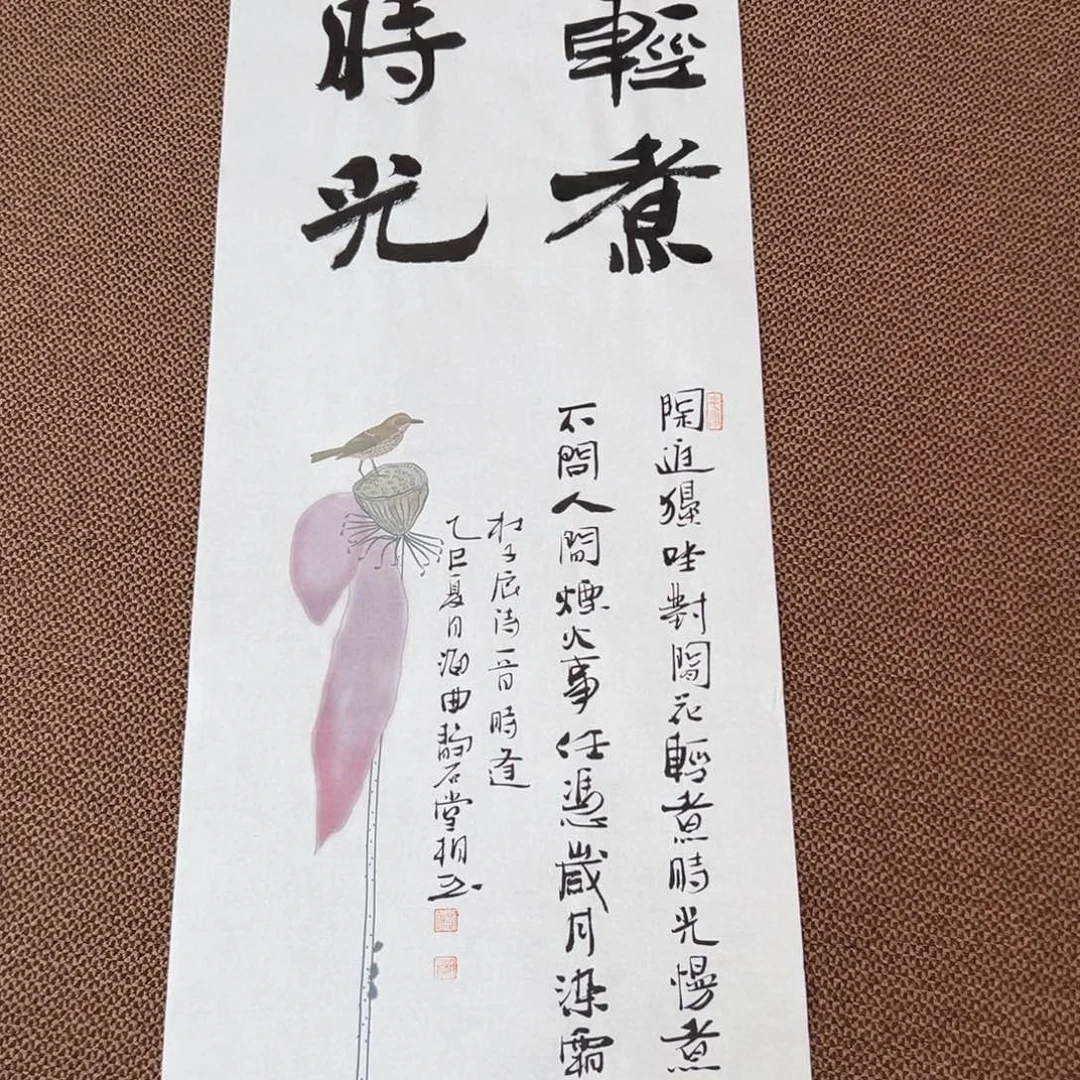 輕煮
時光
閑庭獨坐對閑花輕煮時光慢煮
不問人間煙火事任憑歲月染霜
杜子辰詩一首時逢
乙巳夏日海曲靜石堂相玉